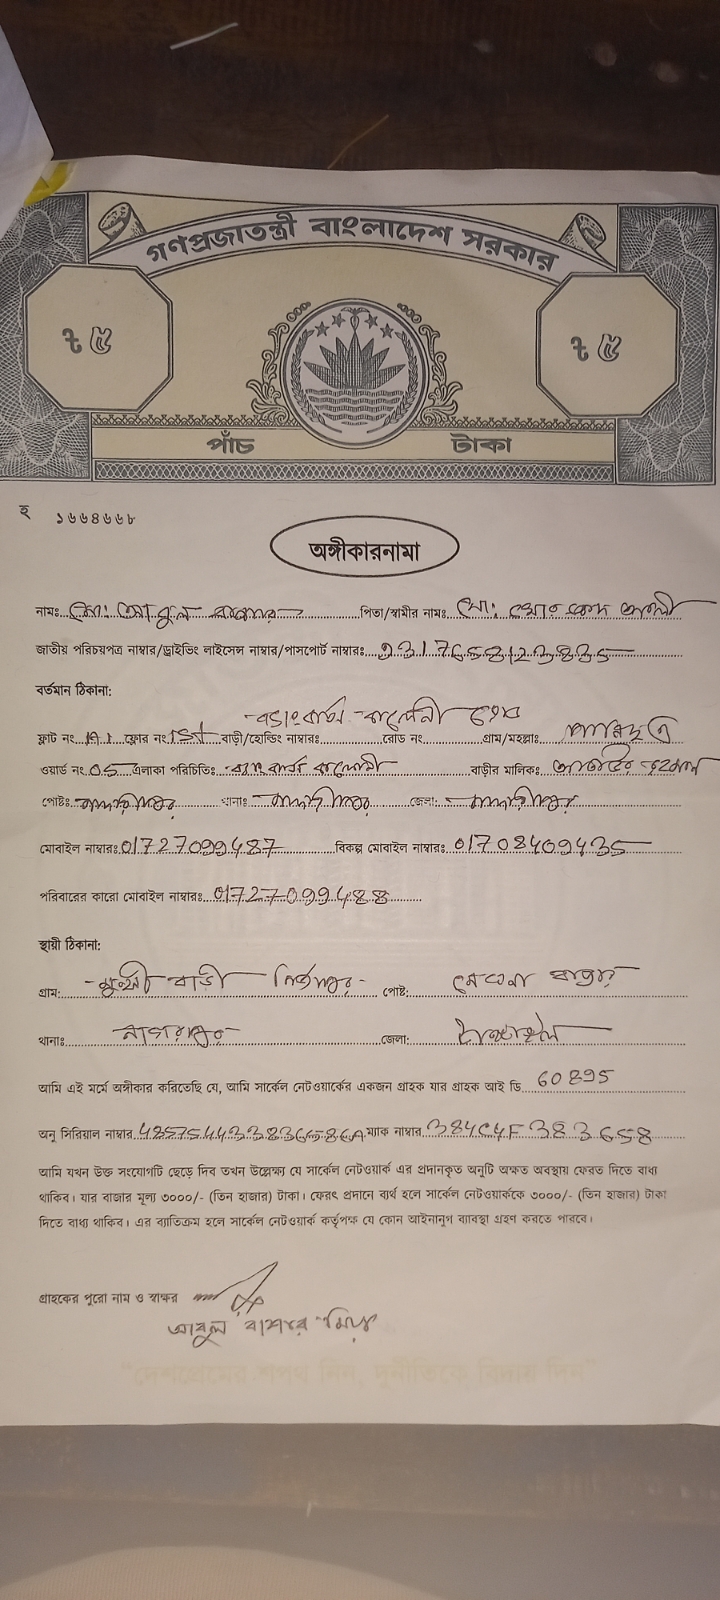 গণপ্রজাতন্ত্রী বাংলাদেশ সরকার
৳ ৫ ৳ ৫
পাঁচ টাকা
হ ১৬৬৪৬৬৮
অঙ্গীকারনামা
নামঃ মো: আবুল বাসার পিতা/স্বামীর নামঃ মো:
জাতীয় পরিচয়পত্র নাম্বার/ড্রাইভিং লাইসেন্স নাম্বার/পাসপোর্ট নাম্বারঃ 9317658123835
বর্তমান ঠিকানা:
ফ্লাট নং A1 ফ্লোর নং 1st বাড়ী/হোল্ডিং নাম্বারঃ রোড নং গ্রাম/মহল্লাঃ
ওয়ার্ড নং 05 এলাকা পরিচিতিঃ বাড়ীর মালিকঃ
পোষ্টঃ থানাঃ জেলা:
মোবাইল নাম্বারঃ 01727099487 বিকল্প মোবাইল নাম্বারঃ 01708409435
পরিবারের কারো মোবাইল নাম্বারঃ 01727099488
স্থায়ী ঠিকানা:
গ্রাম: মুন্সী বাড়ী পোষ্ট:
থানাঃ নাগরপুর জেলা: টাঙ্গাইল
আমি এই মর্মে অঙ্গীকার করিতেছি যে, আমি সার্কেল নেটওয়ার্কের একজন গ্রাহক যার গ্রাহক আই ডি 60895
অনু সিরিয়াল নাম্বার 485754433836586A ম্যাক নাম্বার 384C4F383658
আমি যখন উক্ত সংযোগটি ছেড়ে দিব তখন উল্লেক্ষ্য যে সার্কেল নেটওয়ার্ক এর প্রদানকৃত অনুটি অক্ষত অবস্থায় ফেরত দিতে বাধ্য
থাকিব। যার বাজার মূল্য ৩০০০/- (তিন হাজার) টাকা। ফেরৎ প্রদানে ব্যর্থ হলে সার্কেল নেটওয়ার্ককে ৩০০০/- (তিন হাজার) টাকা
দিতে বাধ্য থাকিব। এর ব্যতিক্রম হলে সার্কেল নেটওয়ার্ক কর্তৃপক্ষ যে কোন আইনানুগ ব্যাবস্থা গ্রহণ করতে পারবে।
গ্রাহকের পুরো নাম ও স্বাক্ষর
আবুল বাশার মিয়া
"দেশপ্রেমের শপথ নিন, দুর্নীতিকে বিদায় দিন"